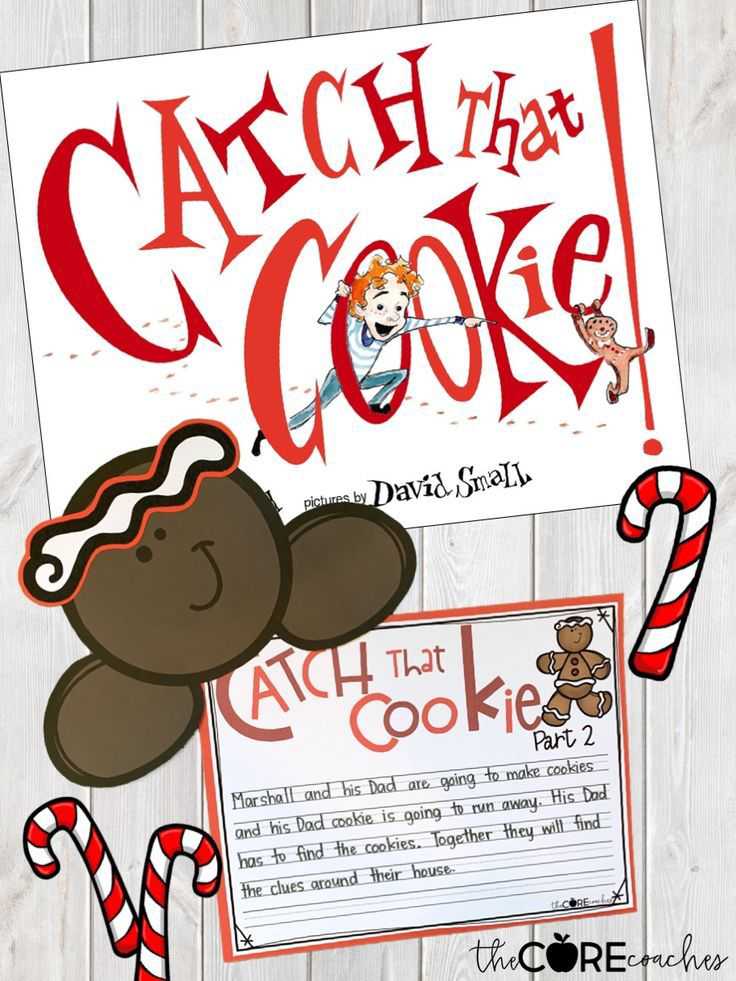 CATCH That
COOKie!
pictures by David Small
CATCH That
Cookie
Part 2
Marshall and his Dad are going to make cookies
and his Dad cookie is going to run away. His Dad
has to find the cookies. Together they will find
the clues around their house.
theCOREcoaches
theCOREcoaches